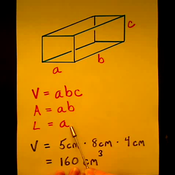 c
a
b
V = abc
A = ab
L = a
V = 5cm · 8cm · 4cm
= 160 cm³